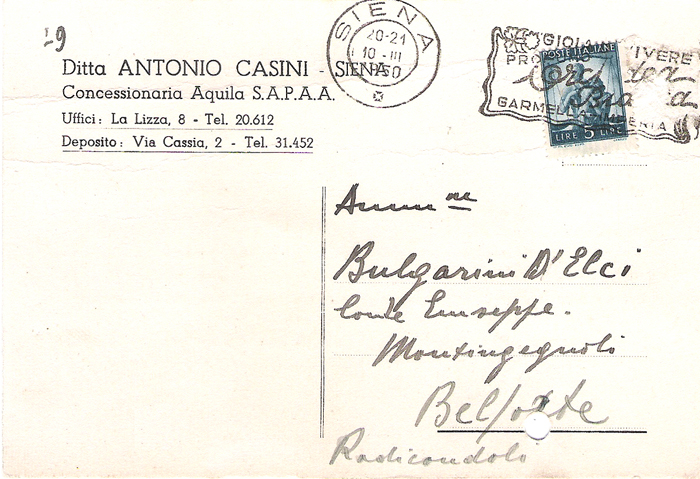 29
SIENA
20-21
10-III
1950
Ditta ANTONIO CASINI - SIENA
Concessionaria Aquila S.A.P.A.A.
Uffici: La Lizza, 8 - Tel. 20.612
Deposito: Via Cassia, 2 - Tel. 31.452
GIOIA VIVERE
PRO
GARME IMPERIA
POSTE ITALIANE
LIRE 5 LIRE
Amm ne
Bulgarini D'Elci
Conte Giuseppe.
Montingegnoli
Belforte
Radicondoli